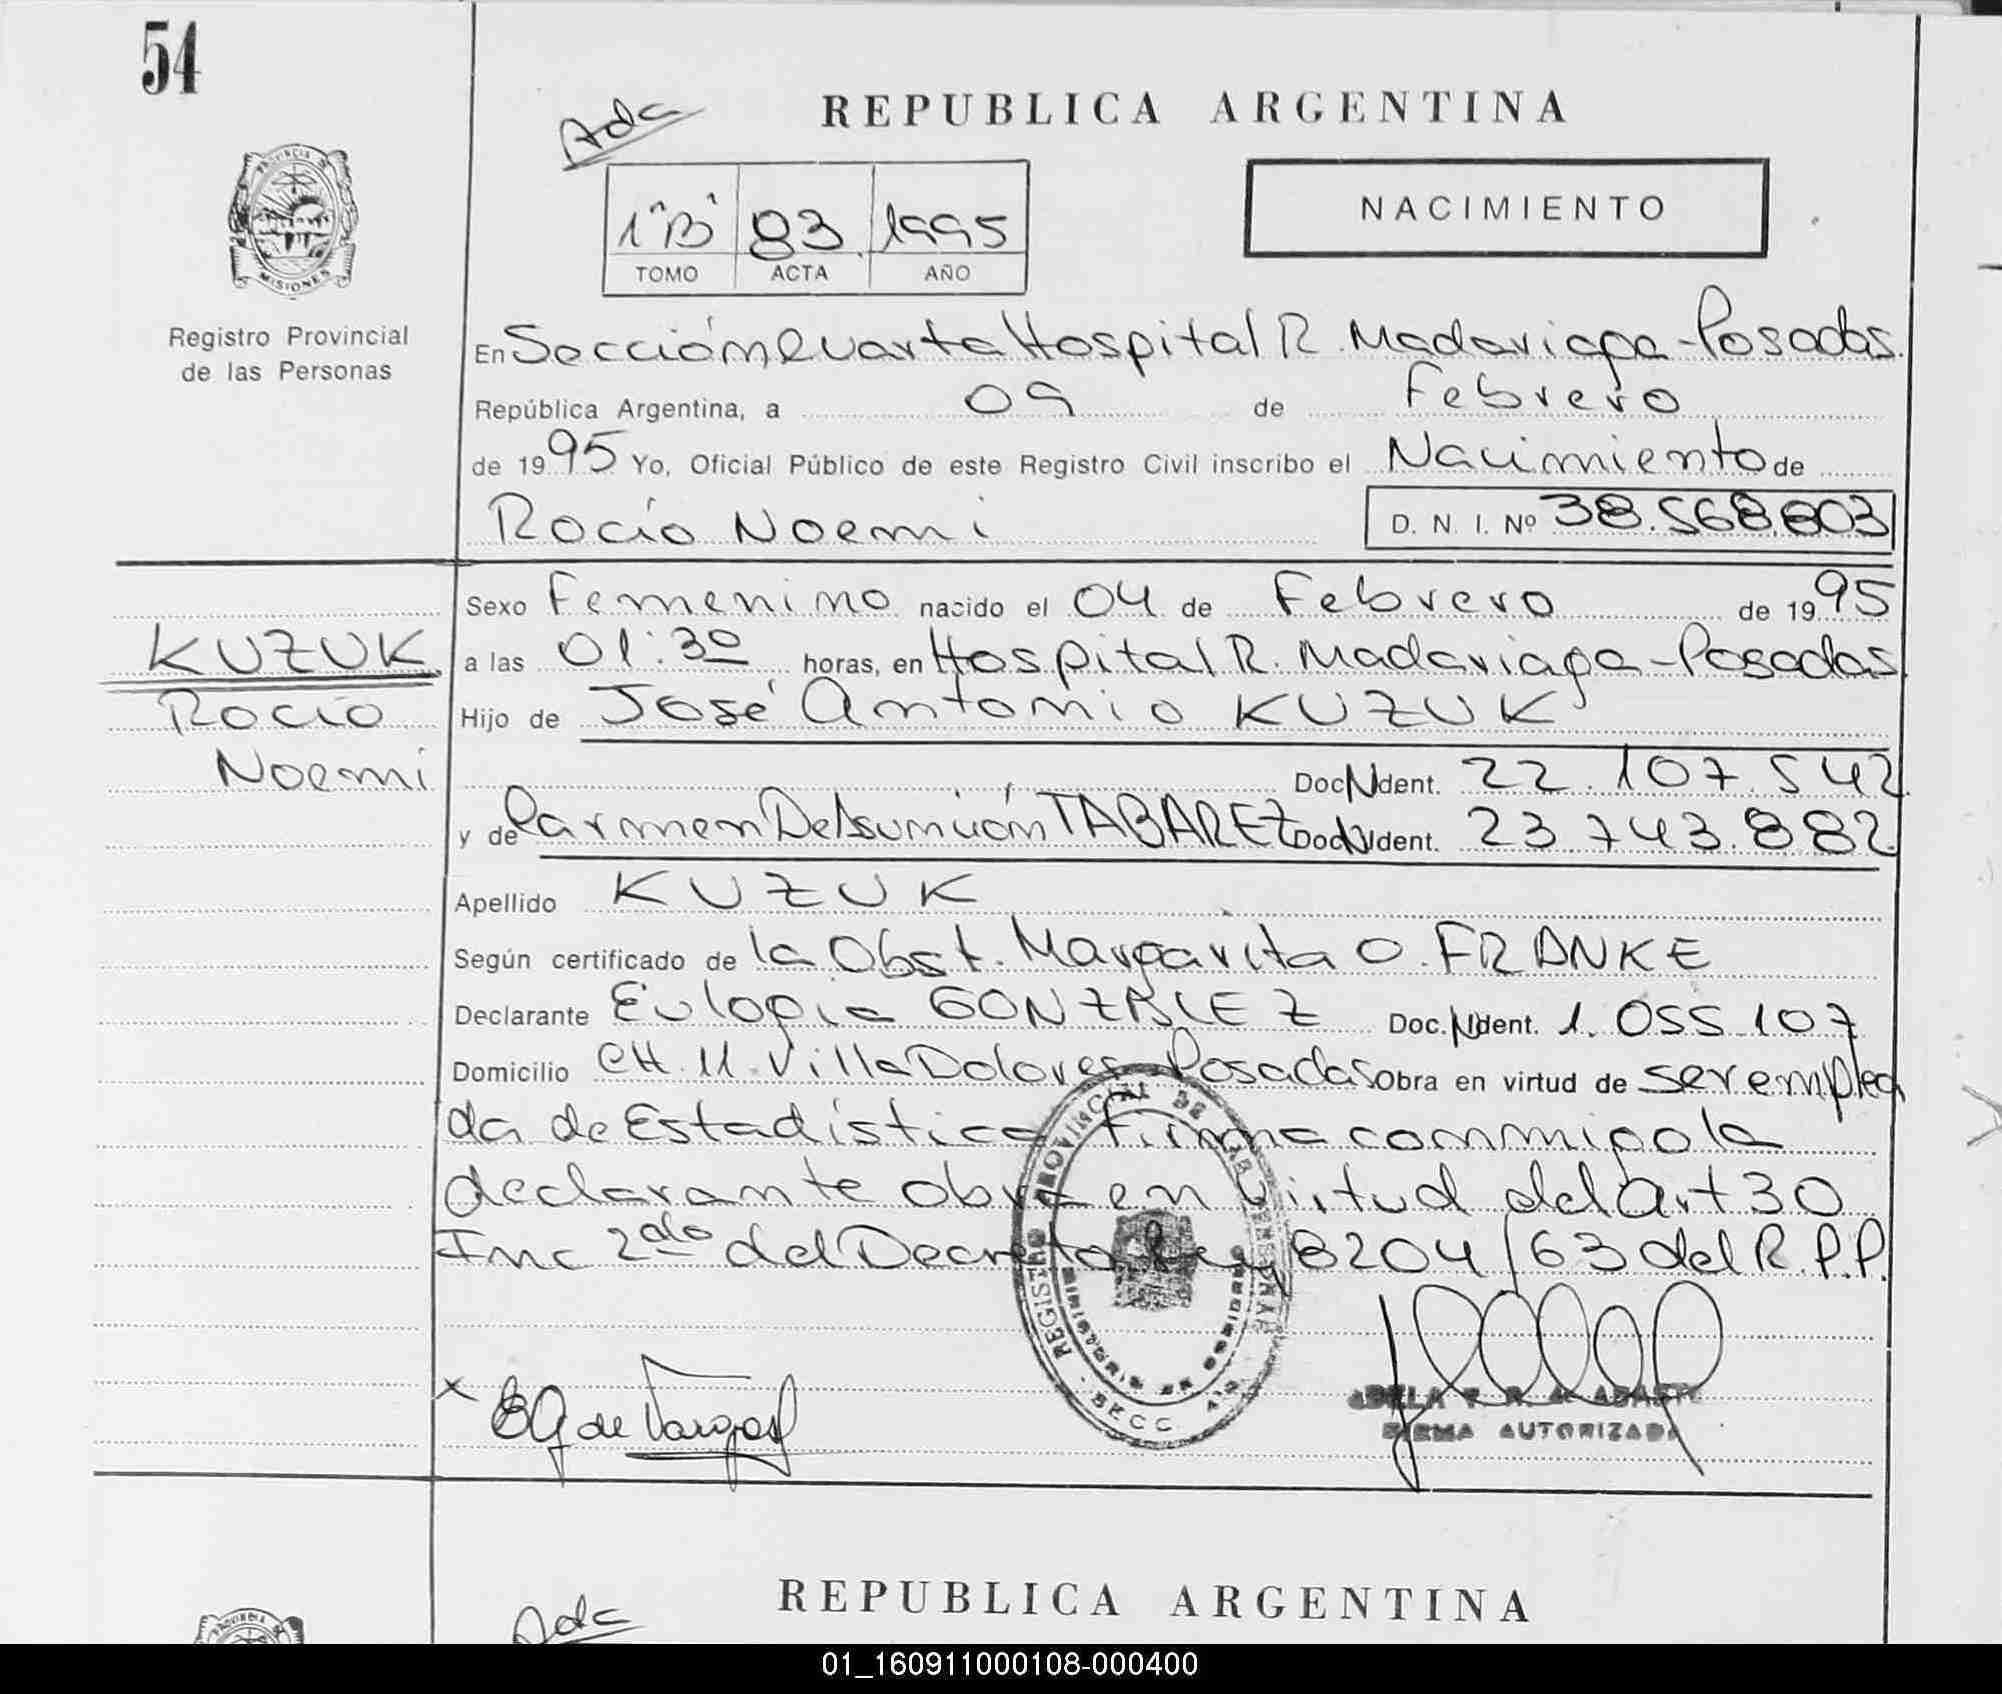 54
REPUBLICA ARGENTINA
Ada
PROVINCIA DE
MISIONES
Registro Provincial
de las Personas
NACIMIENTO
1"B" 83 1995
TOMO ACTA AÑO
En Sección Cuarta Hospital R. Madariaga - Posadas.
República Argentina, a 09 de Febrero
de 1995 Yo, Oficial Público de este Registro Civil inscribo el Nacimiento de
Rocío Noemi D. N. I. Nº 38.568.803
Sexo Femenino nacido el 04 de Febrero de 1995
KUZUK a las 01:30 horas, en Hospital R. Madariaga - Posadas
Rocío Hijo de José Antonio KUZUK
Noemi Doc. N Ident. 22.107.542
y de Carmen Delsumición TABAREZ Doc. N Ident. 23.743.882
Apellido KUZUK
Según certificado de la Obst. Margarita O. FRANKE
Declarante Eulogia GONZALEZ Doc. N Ident. 1.055.107
Domicilio CH. 11. Villa Dolores - Posadas Obra en virtud de ser emplea
da de Estadística Firma conmigo la
declarante obra en virtud del Art 30
Inc 2do del Decreto Ley 8204/63 del R.P.P.
REGISTRO PROVINCIAL DE LAS PERSONAS
MINISTERIO DE GOBIERNO
SECC. 4ta
x EG de Vargas
ADELA
FIRMA AUTORIZADA
REPUBLICA ARGENTINA
Ada
PROVINCIA
01_160911000108-000400